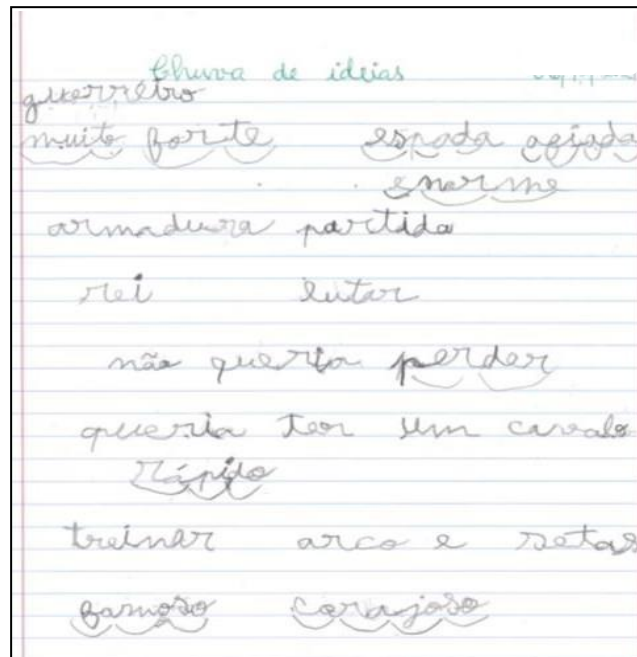 Chuva de ideias
guerreiro
muito forte espada afiada
enorme
armadura partida
rei lutar
não queria perder
queria ter um cavalo
rápido
treinar arco e setas
famoso corajoso